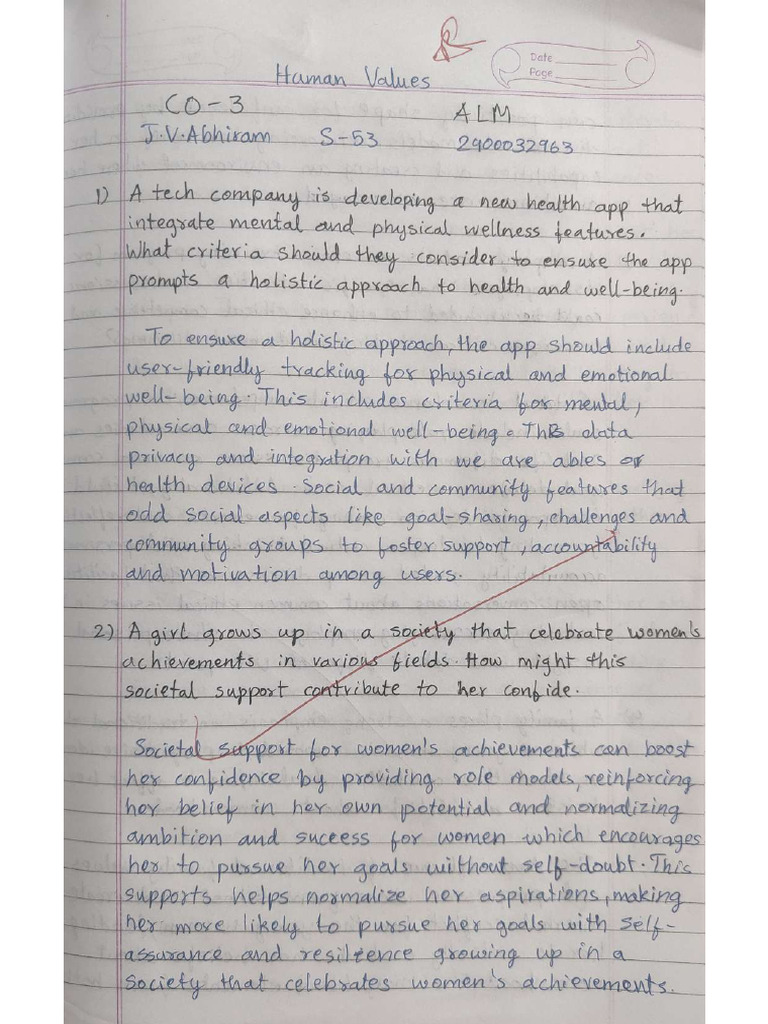 Date
Page
Human Values
CO-3 ALM
J.V.Abhiram S-53 2900032963
1) A tech company is developing a new health app that
integrate mental and physical wellness features.
What criteria should they consider to ensure the app
prompts a holistic approach to health and well-being.
To ensure a holistic approach, the app should include
user-friendly tracking for physical and emotional
well-being. This includes criteria for mental,
physical and emotional well-being. data
privacy and integration with we are ables or
health devices. Social and community features that
odd social aspects like goal-sharing, challenges and
community groups to foster support, accountability
and motivation among users.
2) A girl grows up in a society that celebrate women's
achievements in various fields. How might this
societal support contribute to her confide.
Societal support for women's achievements can boost
her confidence by providing role models, reinforcing
her belief in her own potential and normalizing
ambition and success for women which encourages
her to pursue her goals without self-doubt. This
supports helps normalize her aspirations, making
her more likely to pursue her goals with self-
assurance and resilience growing up in a
society that celebrates women's achievements.